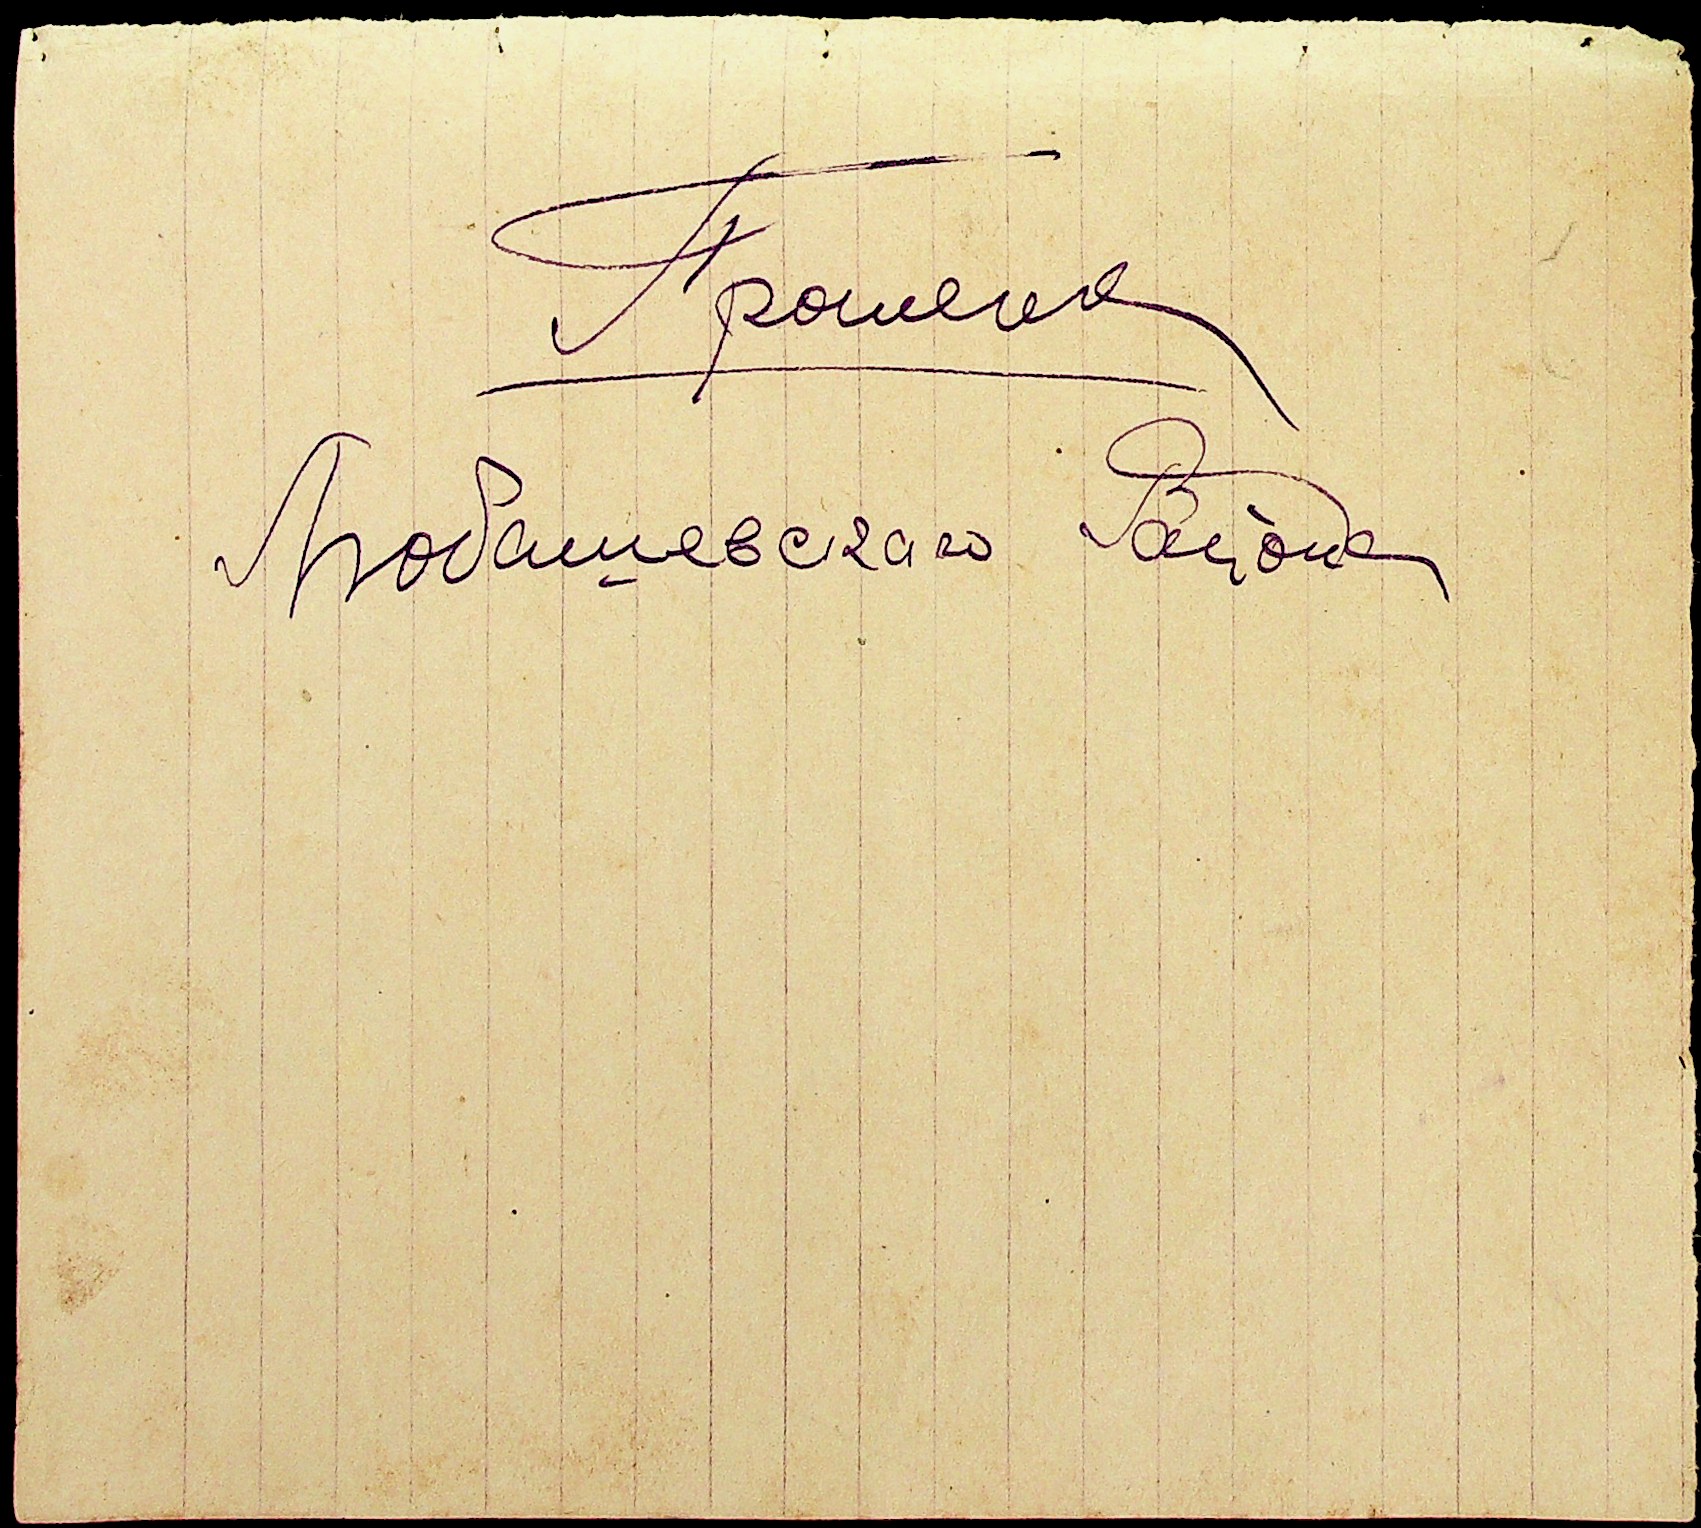 Прошения
Любашевскаго Района